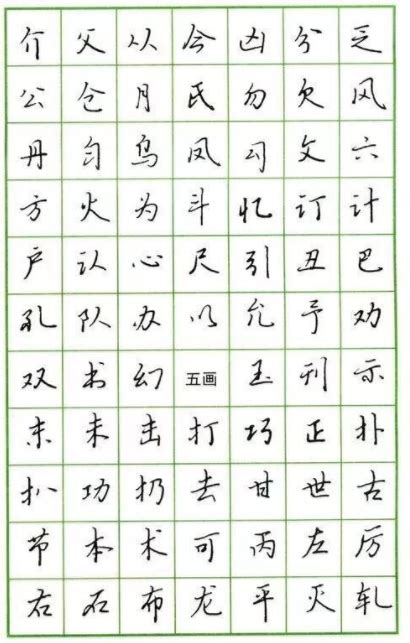 介父从今凶分乏
公仓月氏勿欠风
丹匀乌凤勾文六
方火为斗忆订计
户认心尺引丑巴
孔队办以允予劝
双书幻五画玉刊示
末未击打巧正扑
扒功扔去甘世古
节本术可丙左厉
右石布龙平灭轧